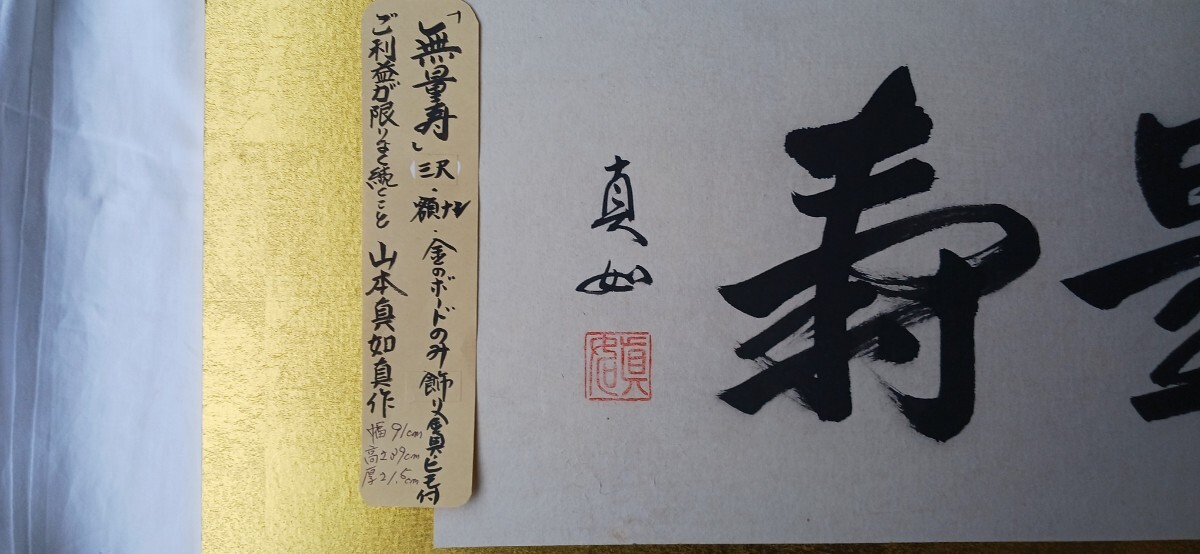 量寿
真如
眞如
「無量寿」(三尺)・額ナシ・金のボードのみ飾り金具・ヒモ付
ご利益が限りなく続くこと 山本真如真作
幅91cm
高さ39cm
厚さ1.5cm